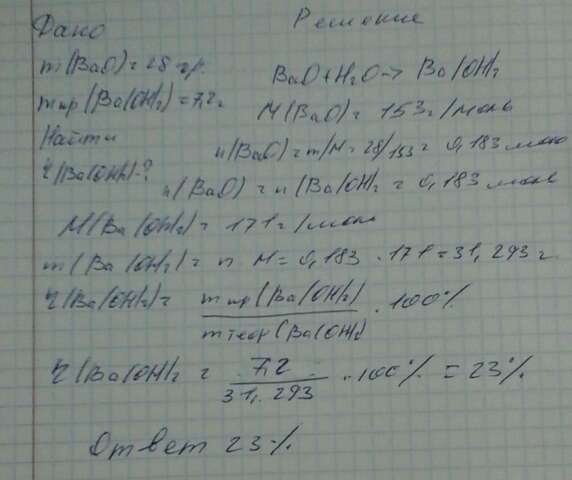 Дано Решение
m(BaO)=28 гр.
BaO+H₂O→Ba(OH)₂
mпр(Ba(OH)₂)=7,2г
M(BaO)=153г/моль
Найти
n(BaO)=m/M=28/153=0,183моль
η(Ba(OH)₂)-?
n(BaO)=n(Ba(OH)₂=0,183 моль
M(Ba(OH)₂)=171г/моль
m(Ba(OH)₂)=n M=0,183·171=31,293г
η(Ba(OH)₂)= mпр(Ba(OH)₂) ·100%
mтеор(Ba(OH)₂)
η(Ba(OH)₂= 7,2 ·100%=23%
31,293
Ответ 23%